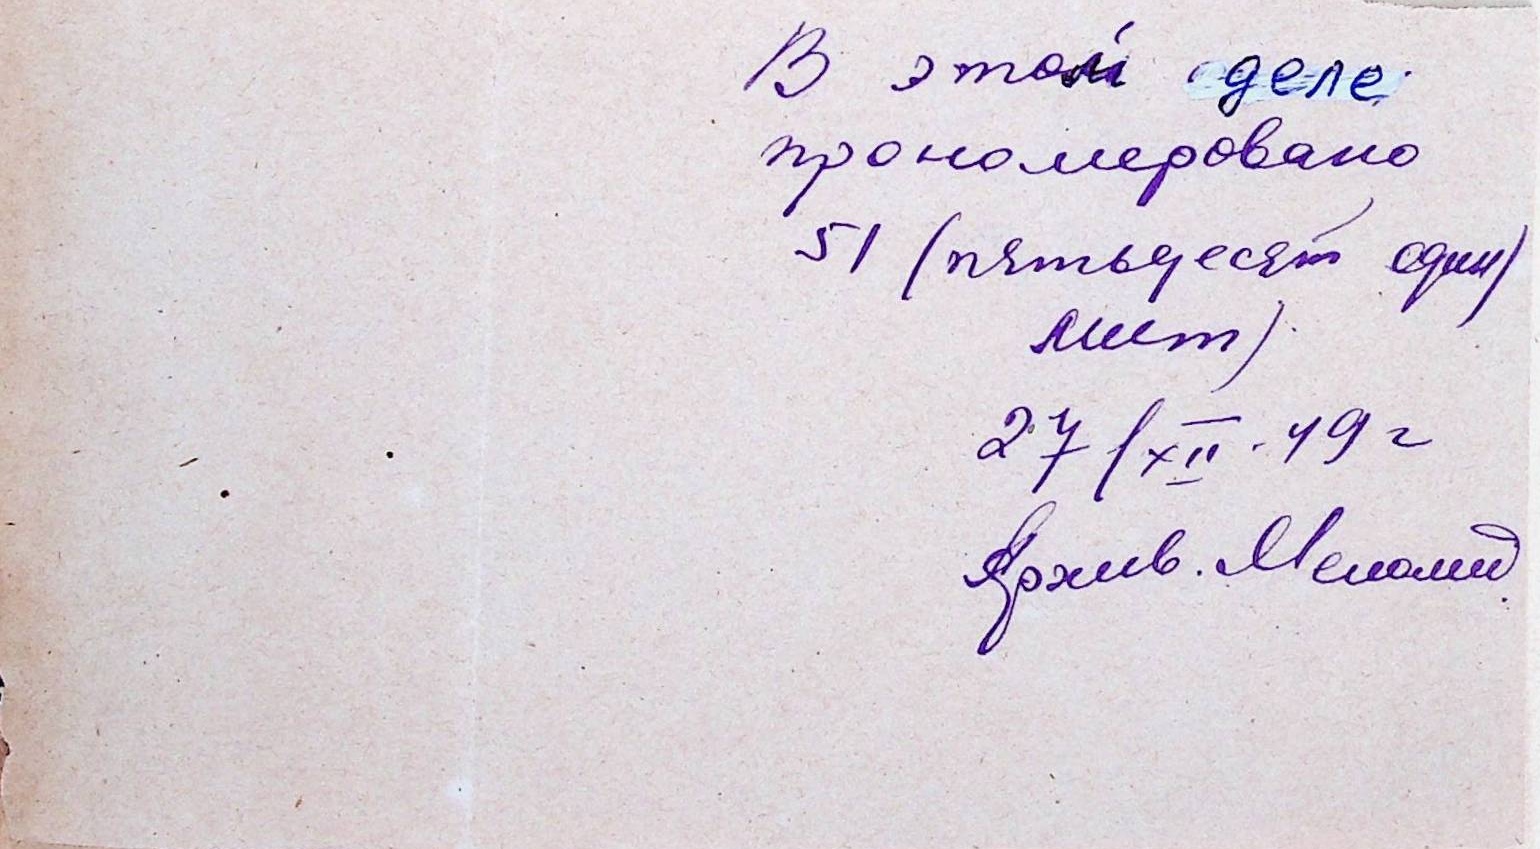 В этом деле
прономеровано
51 (пятьдесят один)
лист)
27/XII-49 г
Архив. Меламид